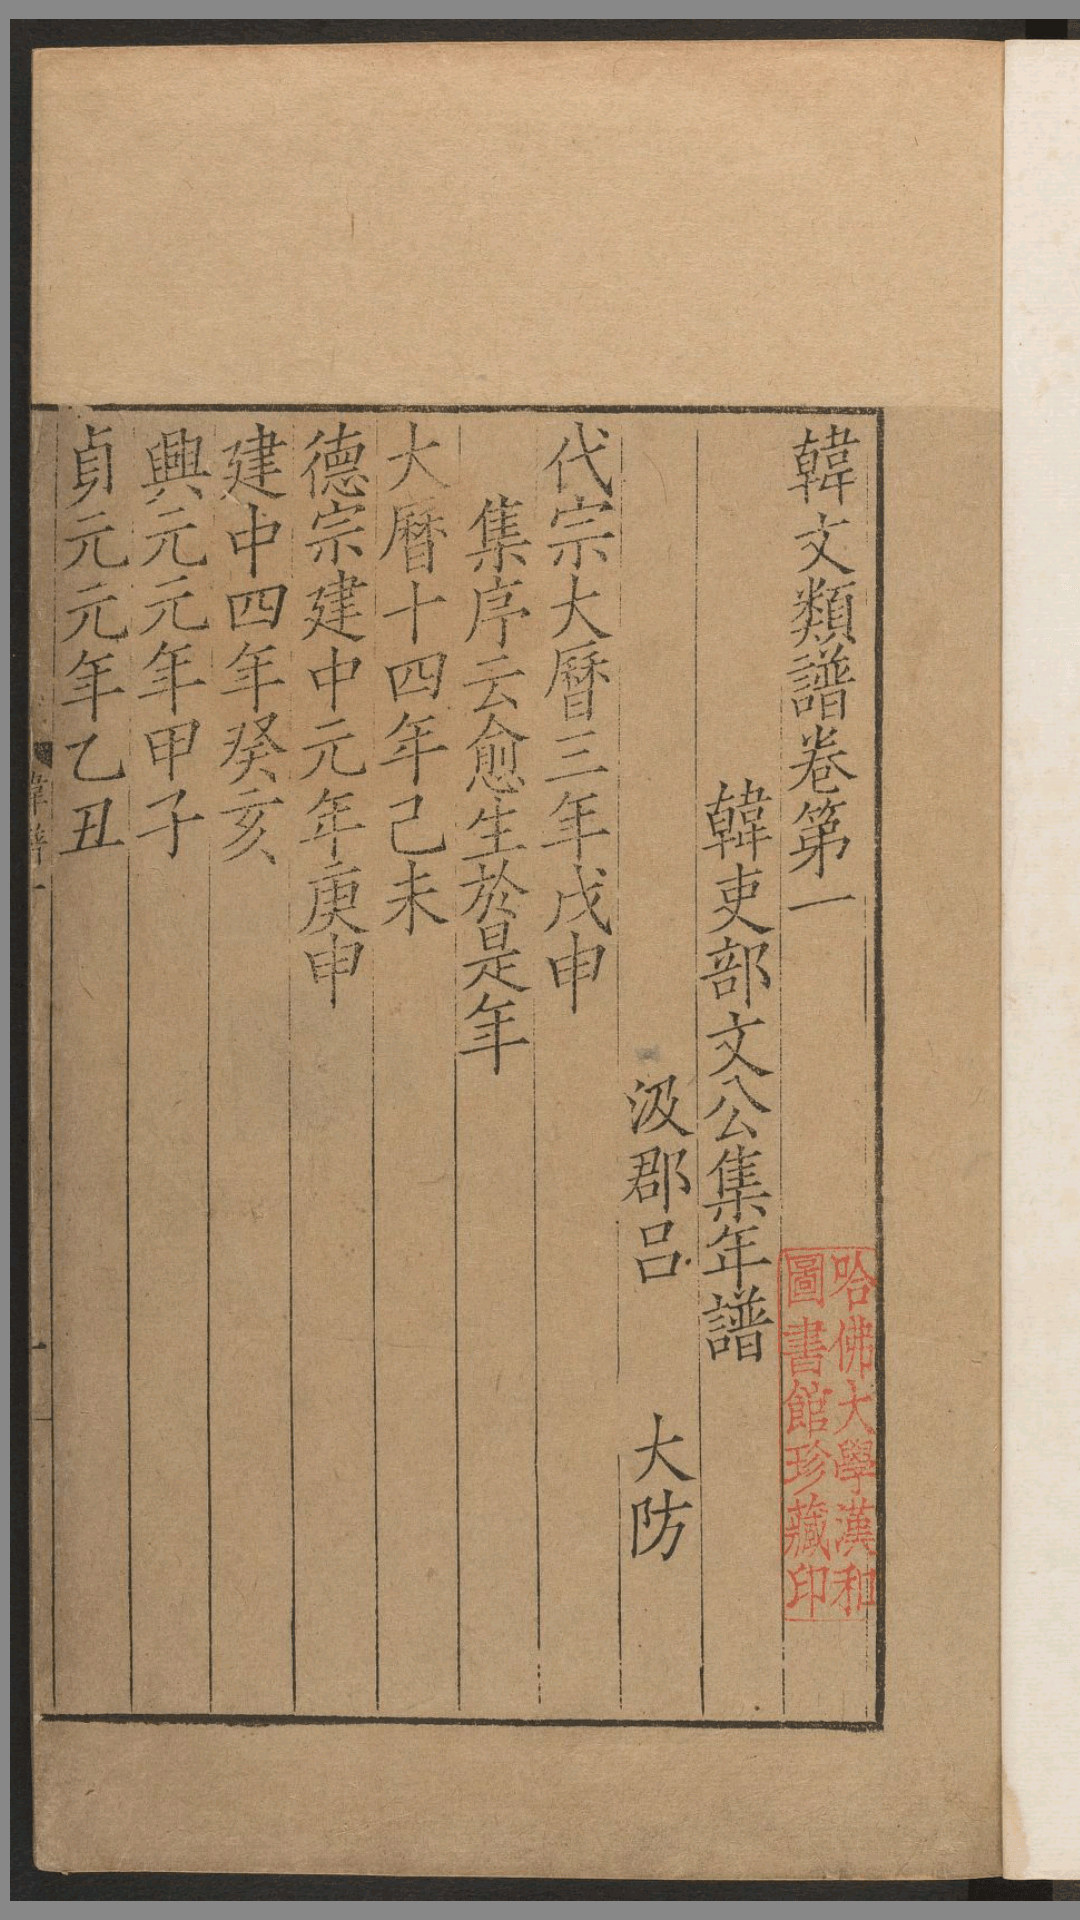 韓文類譜卷第一
韓吏部文公集年譜
汲郡呂 大防
代宗大曆三年戊申
集序云愈生於是年
大曆十四年己未
德宗建中元年庚申
建中四年癸亥
興元元年甲子
貞元元年乙丑
哈佛大學漢和
圖書館珍藏印